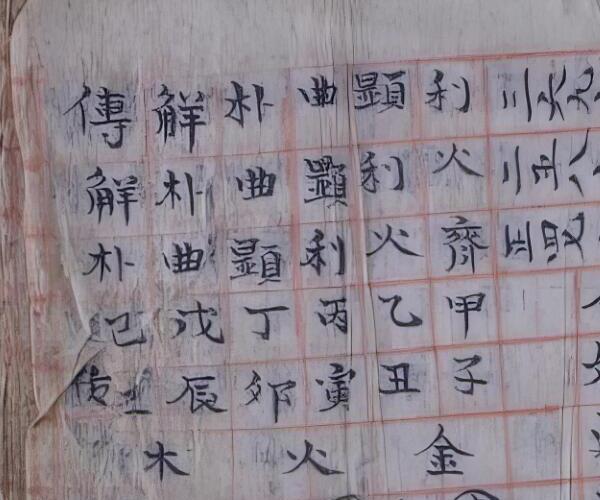 利火齊甲子金
顯利火乙丑
曲顯利丙寅火
朴曲顯丁夘
解朴曲戊辰木
傳解朴己